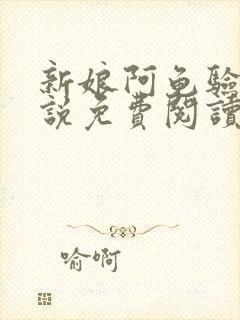 新娘阿龟驗
說免費閱讀
喻啊